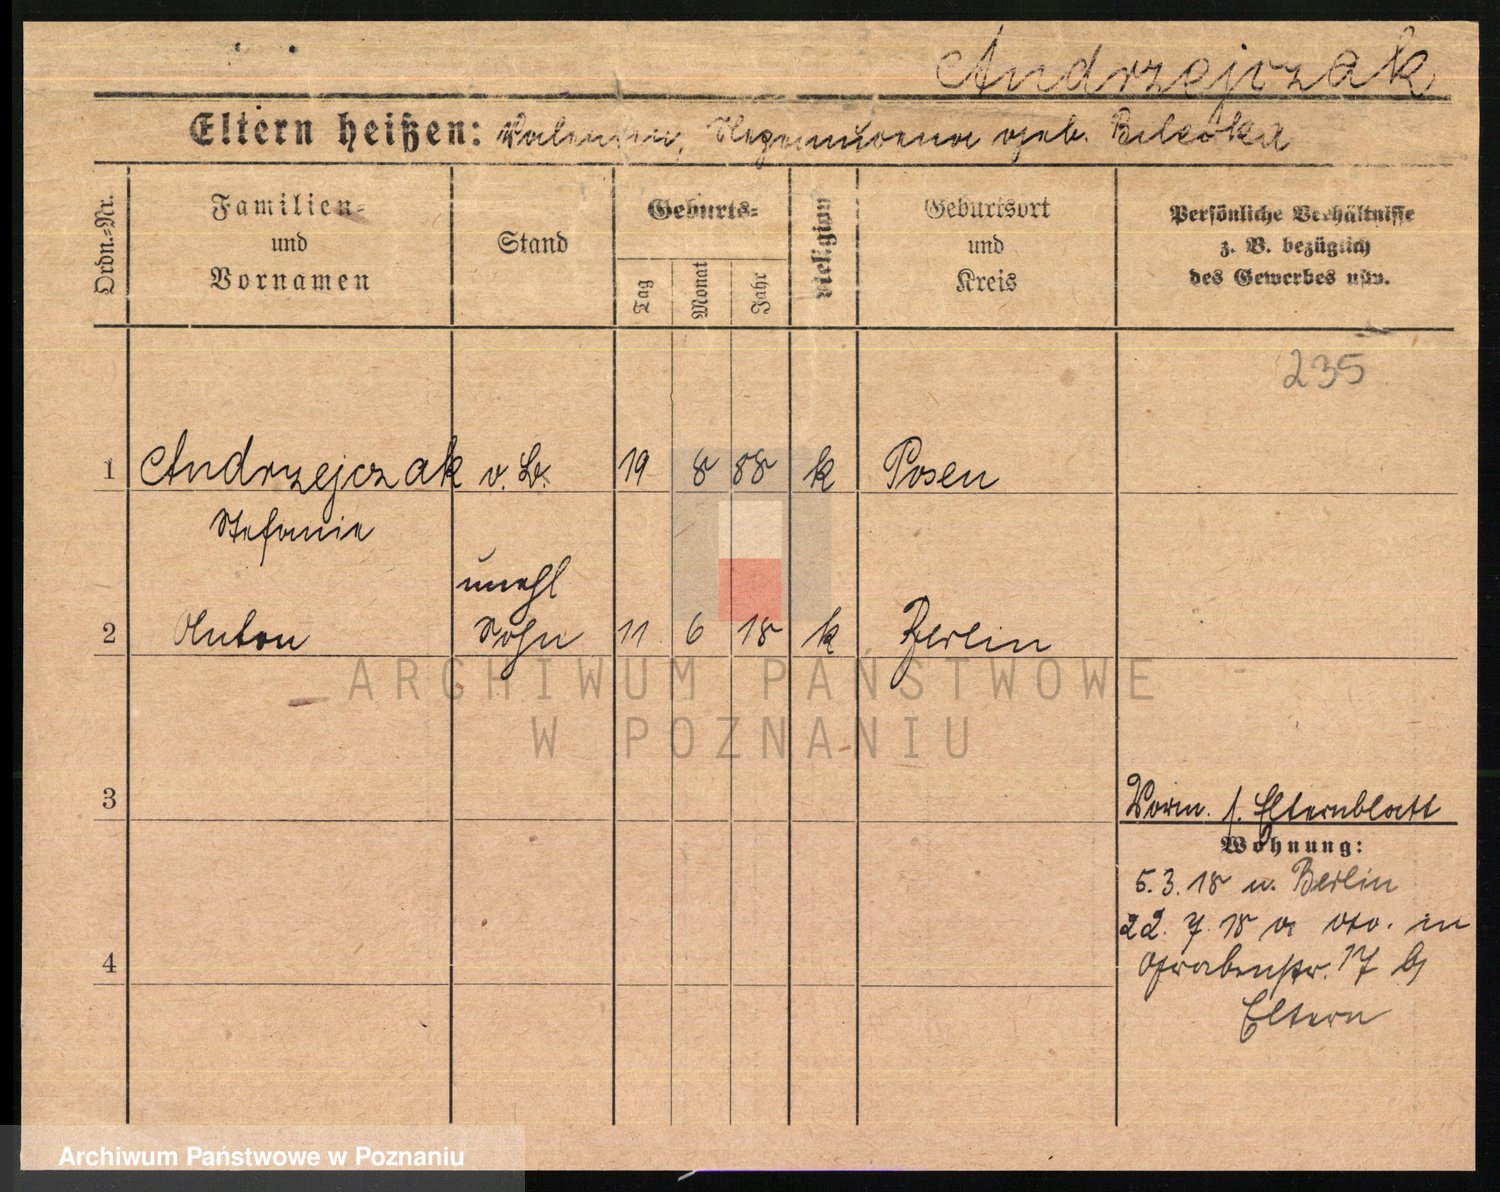 Andrzejczak
Eltern heißen: Valentin, geb. Bilska
Ordn.-Nr.
Familien-
und
Vornamen
Stand
Geburts-
Tag
Monat
Jahr
Religion
Geburtsort
und
Kreis
Persönliche Verhältnisse
z. B. bezüglich
des Gewerbes usw.
235
1 Andrzejczak 19 8 88 k Posen
Stefanie
unehl
2 Anton Sohn 11 6 18 k Berlin
ARCHIWUM PAŃSTWOWE
W POZNANIU
3
Vorm. s. Elternblatt
Wohnung:
5.3.18 n. Berlin
22. 7. 18 in
4
Grabenstr. 17 b/
Eltern
Archiwum Państwowe w Poznaniu